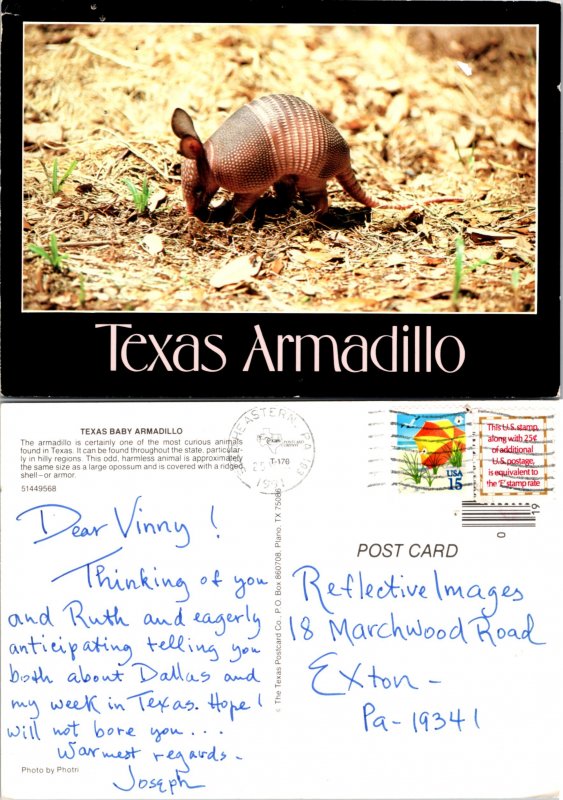 Texas Armadillo
TEXAS BABY ARMADILLO
The armadillo is certainly one of the most curious animals
found in Texas. It can be found throughout the state, particular-
ly in hilly regions. This odd, harmless animal is approximately
the same size as a large opossum and is covered with a ridged
shell—or armor.
51449568
Dear Vinny!
Thinking of you
and Ruth and eagerly
anticipating telling you
both about Dallas and
my week in Texas. Hope I
will not bore you...
Warmest regards-
Joseph
Photo by Photri
© The Texas Postcard Co. P.O. Box 860708, Plano, TX 75086
T-176
1991
USA
15
This U.S. stamp,
along with 25¢
of additional
U.S. postage,
is equivalent to
the 'F' stamp rate
0
19
POST CARD
Reflective Images
18 Marchwood Road
Exton-
Pa-19341